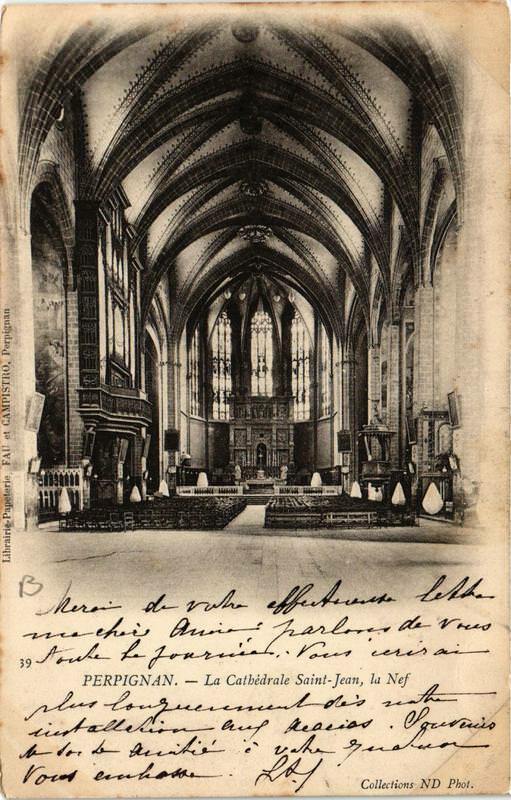 Librairie-Papeterie FAU et CAMPISTRO, Perpignan
B
Merci de votre affectueuse lettre
ma chère Amie: parlons de vous
39 toute la journée. Vous écrirai
PERPIGNAN. — La Cathédrale Saint-Jean, la Nef
plus longuement dès notre
installation aux Acacias. Souvenirs
et amitié à votre
vous embrasse.
Collections ND Phot.